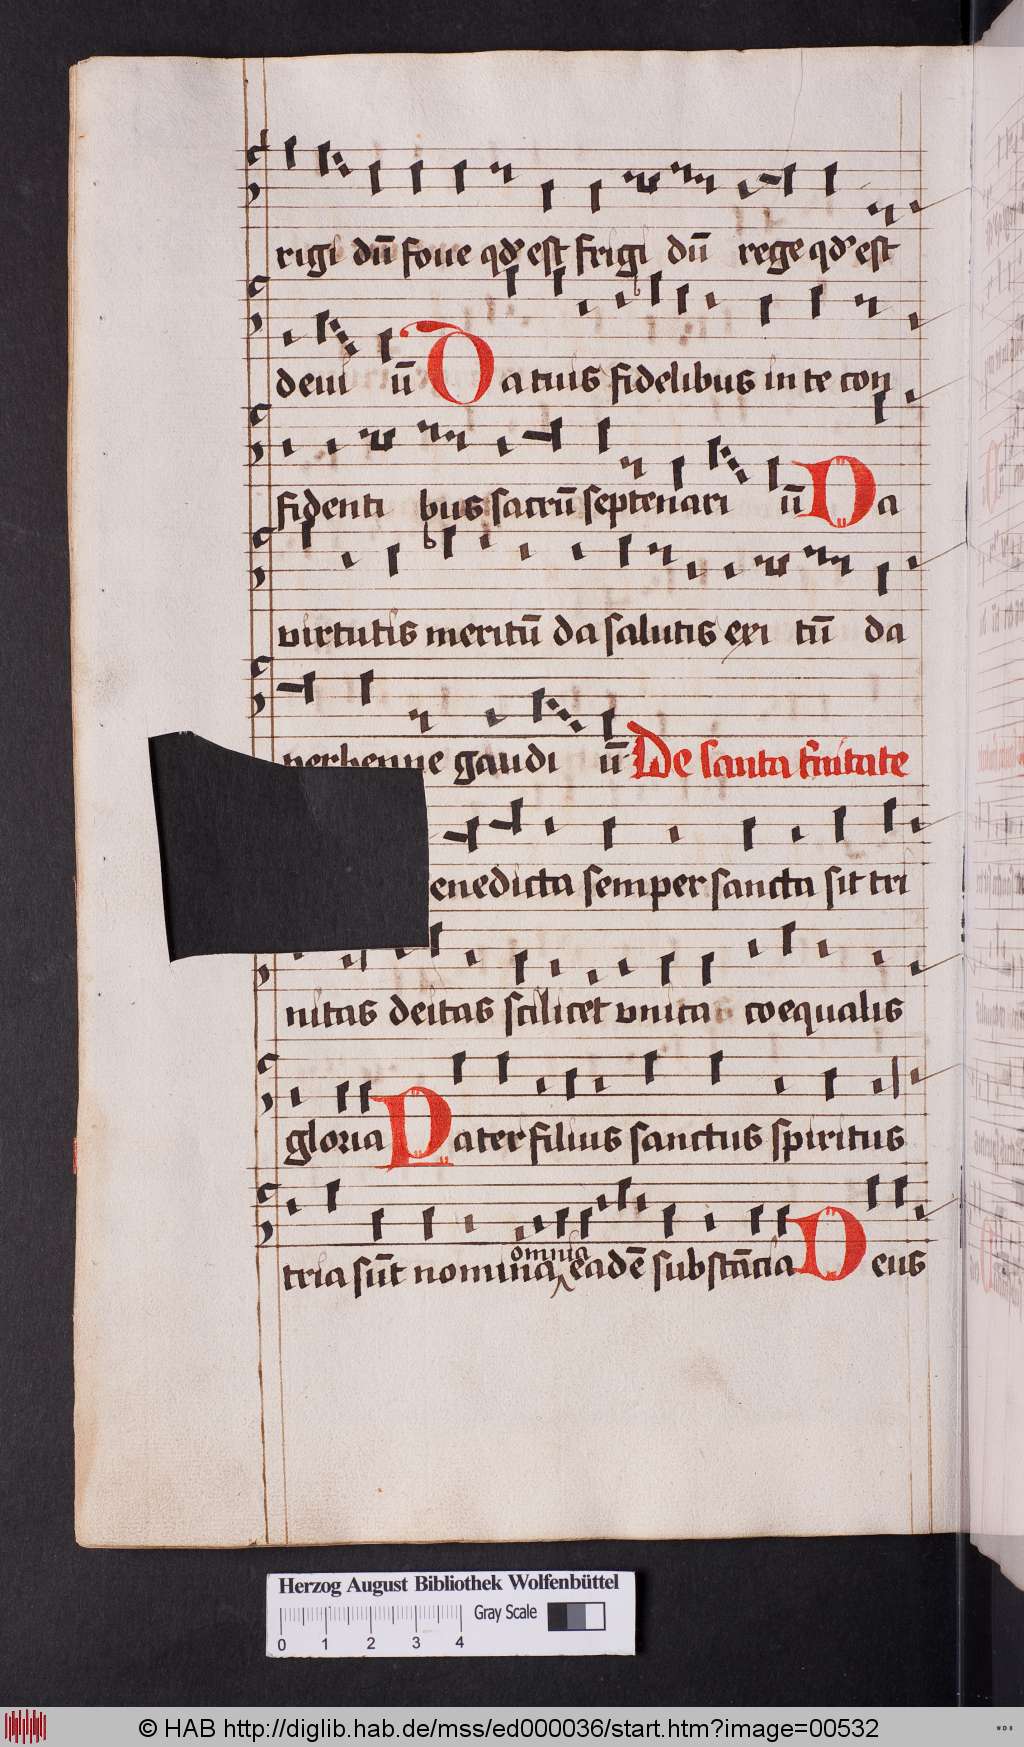 rigi dū foue qd' est frigi dū rege qd' est
deui ū Da tuis fidelibus in te con
fidenti bus sacrū septenari ū Da
virtutis meritū da salutis exi tū da
perhenne gaudi ū De santa trinitate
enedicta semper sancta sit tri
nitas deitas scilicet vnita coequalis
gloria Pater filius sanctus spiritus
omnia
tria sūt nomina eadē substācia Deus
Herzog August Bibliothek Wolfenbüttel
Gray Scale
0 1 2 3 4
© HAB http://diglib.hab.de/mss/ed000036/start.htm?image=00532